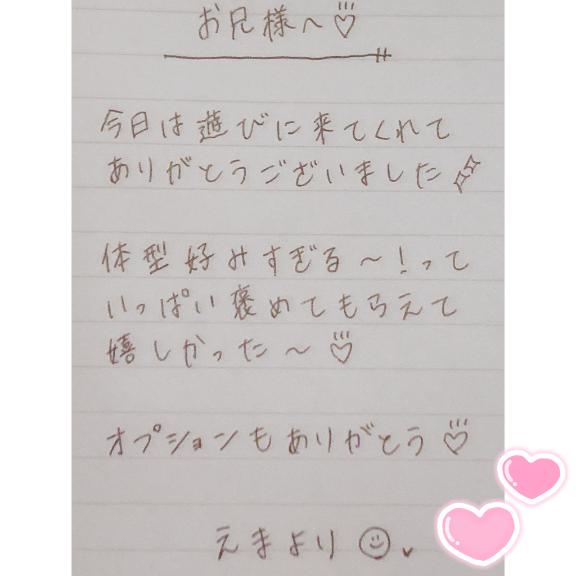 お兄様へ♡
今日は遊びに来てくれて
ありがとうございました
体型好みすぎる〜!って
いっぱい褒めてもらえて
嬉しかった〜♡
オプションもありがとう♡
えまより